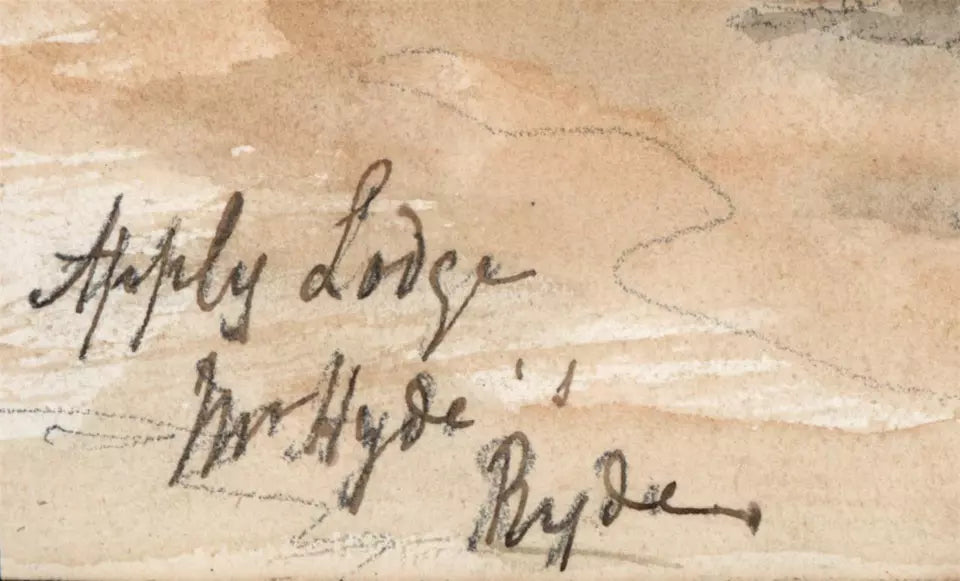 Apply Lodge
Mr Hyde's
Ryde